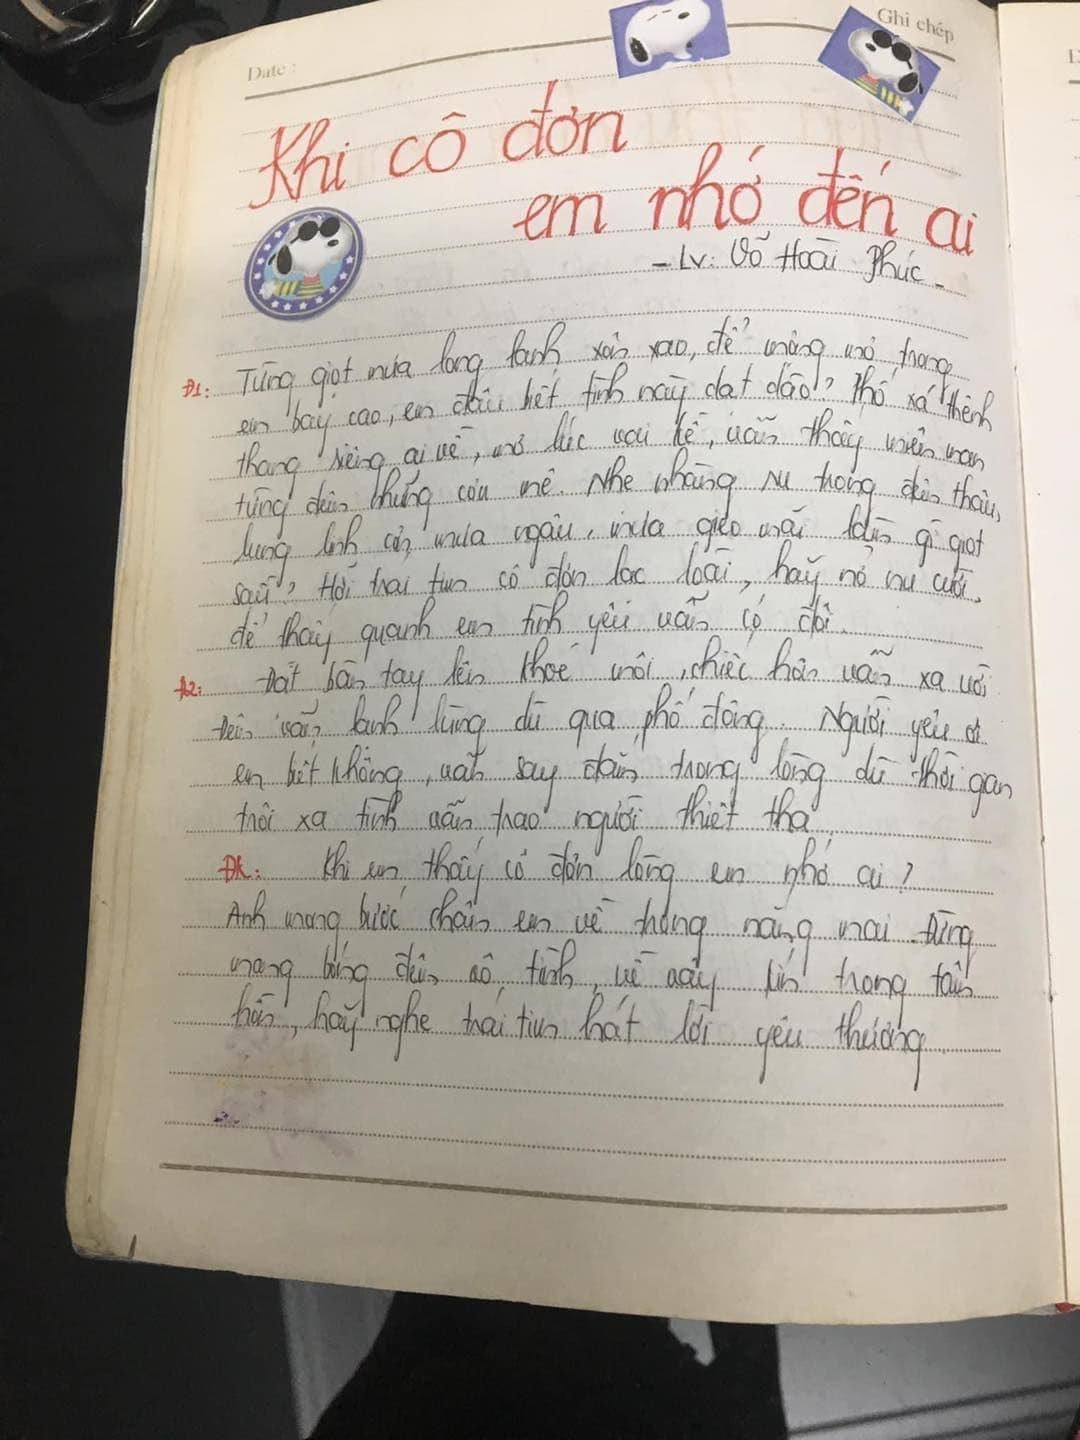 Date :
Ghi chép
Khi cô đơn
em nhớ đến ai
- Lv: Võ Hoài Phúc -
Đ1: Từng giọt mưa long lanh xôn xao, để mộng mơ trong
em bay cao, em đâu biết tình này dạt dào? Phố xá thênh
thang riêng ai về, mơ lúc vai kề, vẫn thấy miên man
từng đêm những cơn mê. Nhẹ nhàng ru trong đêm thâu,
lung linh cơn mưa ngâu, mưa gieo mãi làm gì giọt
sầu? Hỡi trai tim cô đơn lạc loài, hãy nở nụ cười,
để thấy quanh em tình yêu vẫn có đôi.
Đ2: Đặt bàn tay lên khoé môi, chiếc hôn vẫn xa vời
Đêm vẫn lạnh lùng dù qua phố đông. Người yêu ơi
em biết không, vẫn say đắm trong lòng dù thời gian
trôi xa tình vẫn trao người thiết tha
ĐK: Khi em thấy cô đơn lòng em nhớ ai?
Anh mong bước chân em về trong nắng mai. Đừng
mang bóng đêm vô tình, về vây kín trong tâm
hồn, hãy nghe trái tim hát lời yêu thương